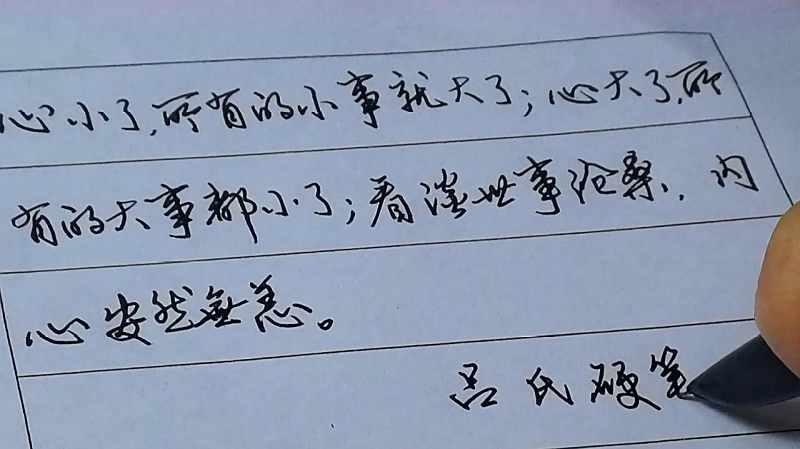 心小了,所有的小事就大了;心大了,所
有的大事都小了;看淡世事沧桑,内
心安然無恙。
吕氏硬笔